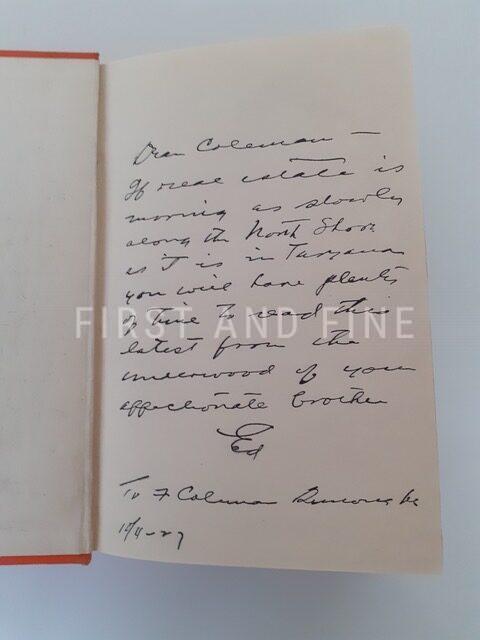 Dear Coleman —
If real estate is
moving as slowly
along the North Shore
as it is in Tarzana
you will have plenty
of time to read this
FIRST AND FINE
latest from the
underwood of your
affectionate brother
Ed
To F Coleman Burroughs
10/4-27